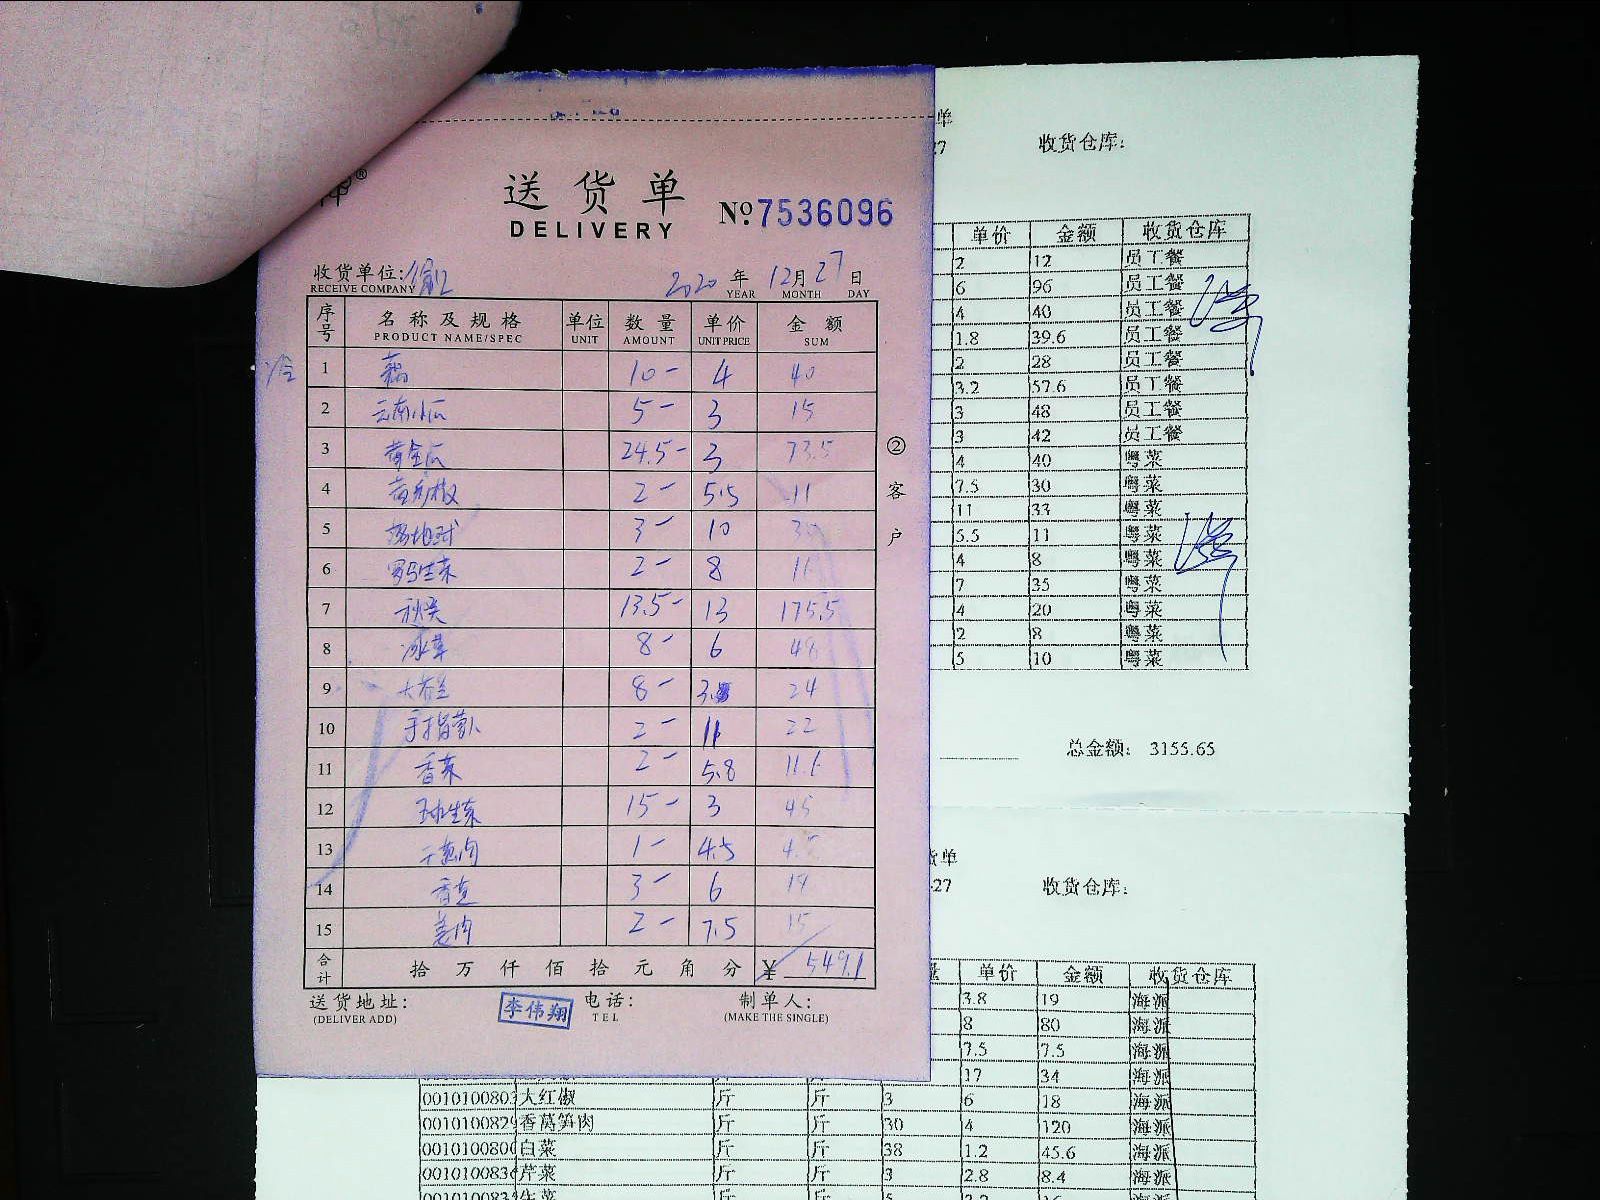 送货单
DELIVERY
№ 7536096
收货单位:
RECEIVE COMPANY
2020 年 12 月 27 日
YEAR MONTH DAY
序号 名称及规格 单位 数量 单价 金额
PRODUCT NAME/SPEC UNIT AMOUNT UNIT PRICE SUM
冷
1 藕 10- 4 40
2 云南小瓜 5- 3 15
3 黄金瓜 24.5- 3 73.5
4 黄彩椒 2- 5.5 11
5 3- 10 30
6 罗马生菜 2- 8 16
7 秋葵 13.5- 13 175.5
8 冰草 8- 6 48
9 大芥兰 8- 3 24
10 手指萝卜 2- 11 22
11 香菜 2- 5.8 11.6
12 球生菜 15- 3 45
13 干葱肉 1- 4.5 4.5
14 香芒 3- 6
15 姜肉 2- 7.5 15
合计 拾 万 仟 佰 拾 元 角 分 ¥ 549.1
②客户
送货地址:
(DELIVER ADD)
李伟翔
电话:
TEL
制单人:
(MAKE THE SINGLE)
单
27 收货仓库:
单价 金额 收货仓库
2 12 员工餐
6 96 员工餐
4 40 员工餐
1.8 39.6 员工餐
2 28 员工餐
3.2 57.6 员工餐
3 48 员工餐
3 42 员工餐
4 40 粤菜
7.5 30 粤菜
11 33 粤菜
5.5 11 粤菜
4 8 粤菜
7 35 粤菜
4 20 粤菜
2 8 粤菜
5 10 粤菜
总金额: 3155.65
货单
-27 收货仓库:
量 单价 金额 收货仓库
3.8 19 海派
8 80 海派
7.5 7.5 海派
17 34 海派
0010100803 大红椒 斤 斤 3 6 18 海派
0010100829 香莴笋肉 斤 斤 30 4 120 海派
001010080 白菜 斤 斤 38 1.2 45.6 海派
001010083 芹菜 斤 斤 3 2.8 8.4 海派